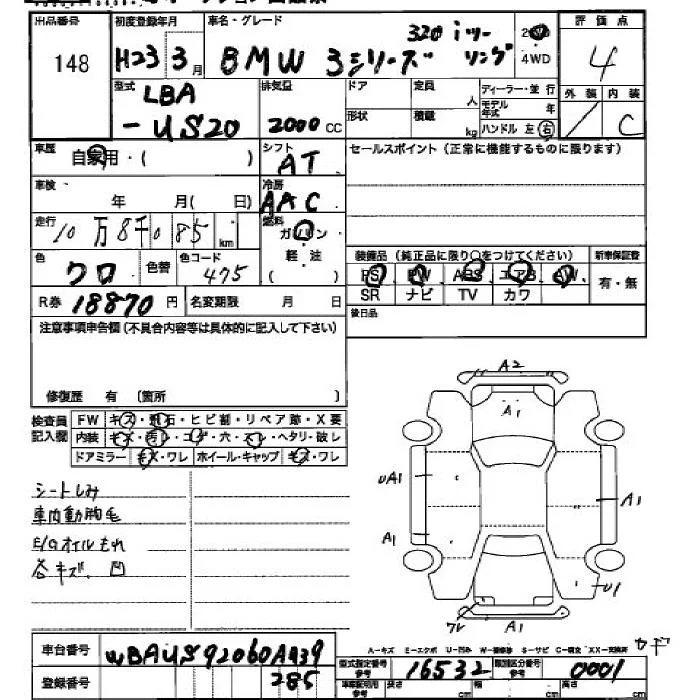 出品番号 初度登録年月 車名・グレード 評価点
148 H23 3月 BMW 3シリーズ 320iツーリング 4WD 4
型式 排気量 ドア 定員 人 ディーラー・並行 外装 内装
LBA 形状 積載 kg モデル年式 年
-US20 2000CC ハンドル 左 右 C
車歴 自家用・( ) シフト AT セールスポイント(正常に機能するものに限ります)
車検 年 月( 日) 冷房 AAC
走行 10万8千085km 燃料 ガソリン
軽・油
( )
色 クロ 色替 色コード 475
装備品(純正品に限り○をつけてください) 新車保証書
PS PW ABS エアB AW 有・無
SR ナビ TV カワ
R券 18870円 名変期限 月 日 後日品
注意事項申告欄(不具合内容等は具体的に記入して下さい)
修復歴 有 〔箇所 〕
検査員記入欄 FW キズ・飛石・ヒビ割・リペア跡・X要
内装 キズ・汚レ・コゲ・穴・スレ・ヘタリ・破レ
ドアミラー キズ・ワレ ホイール・キャップ キズ・ワレ
シートしみ
車内動物毛
E/Gオイルもれ
各キズ、凹
A2
A1
UA1
A1
A1
U1
ワレ
A1
A-キズ E-エクボ U-凹み W-補修跡 S-サビ C-腐食 XX-交換済
カギ
車台番号 WBAUS92060A439
285
登録番号
型式指定番号 16532 類別区分番号 0001
車庫証明用参考 長さ cm 幅 cm 高さ cm